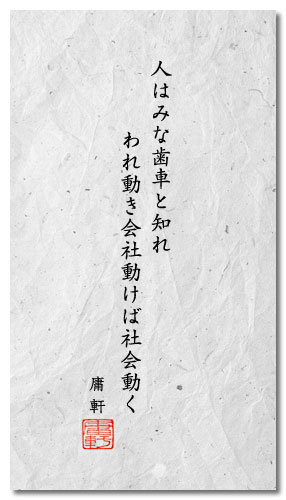 人はみな歯車と知れ
われ動き会社動けば社会動く
庸軒
庸軒